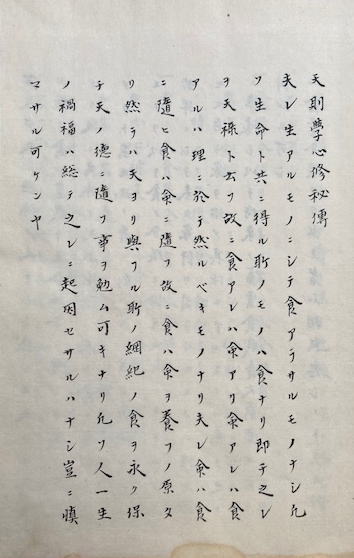 天則學心修秘傳
夫レ生アルモノニシテ食アラサルモノナシ凡
ソ生命ト共ニ得ル所ノモノハ食ナリ即チ之レ
ヲ天祿ト云フ故ニ食アレハ命アリ命アレハ食
アルハ理ニ於テ然ルベキモノナリ夫レ命ハ食
ニ隨ヒ食ハ命ニ隨フ故ニ食ハ命ヲ養フノ原タ
リ然テハ天ヨリ與フル所ノ綱紀ノ食ヲ永ク保
チ天ノ德ニ隨フ事ヲ勉ム可キナリ凡ソ人一生
ノ禍福ハ總テ之レニ起因セサルハナシ豈ニ愼
マサル可ケンヤ